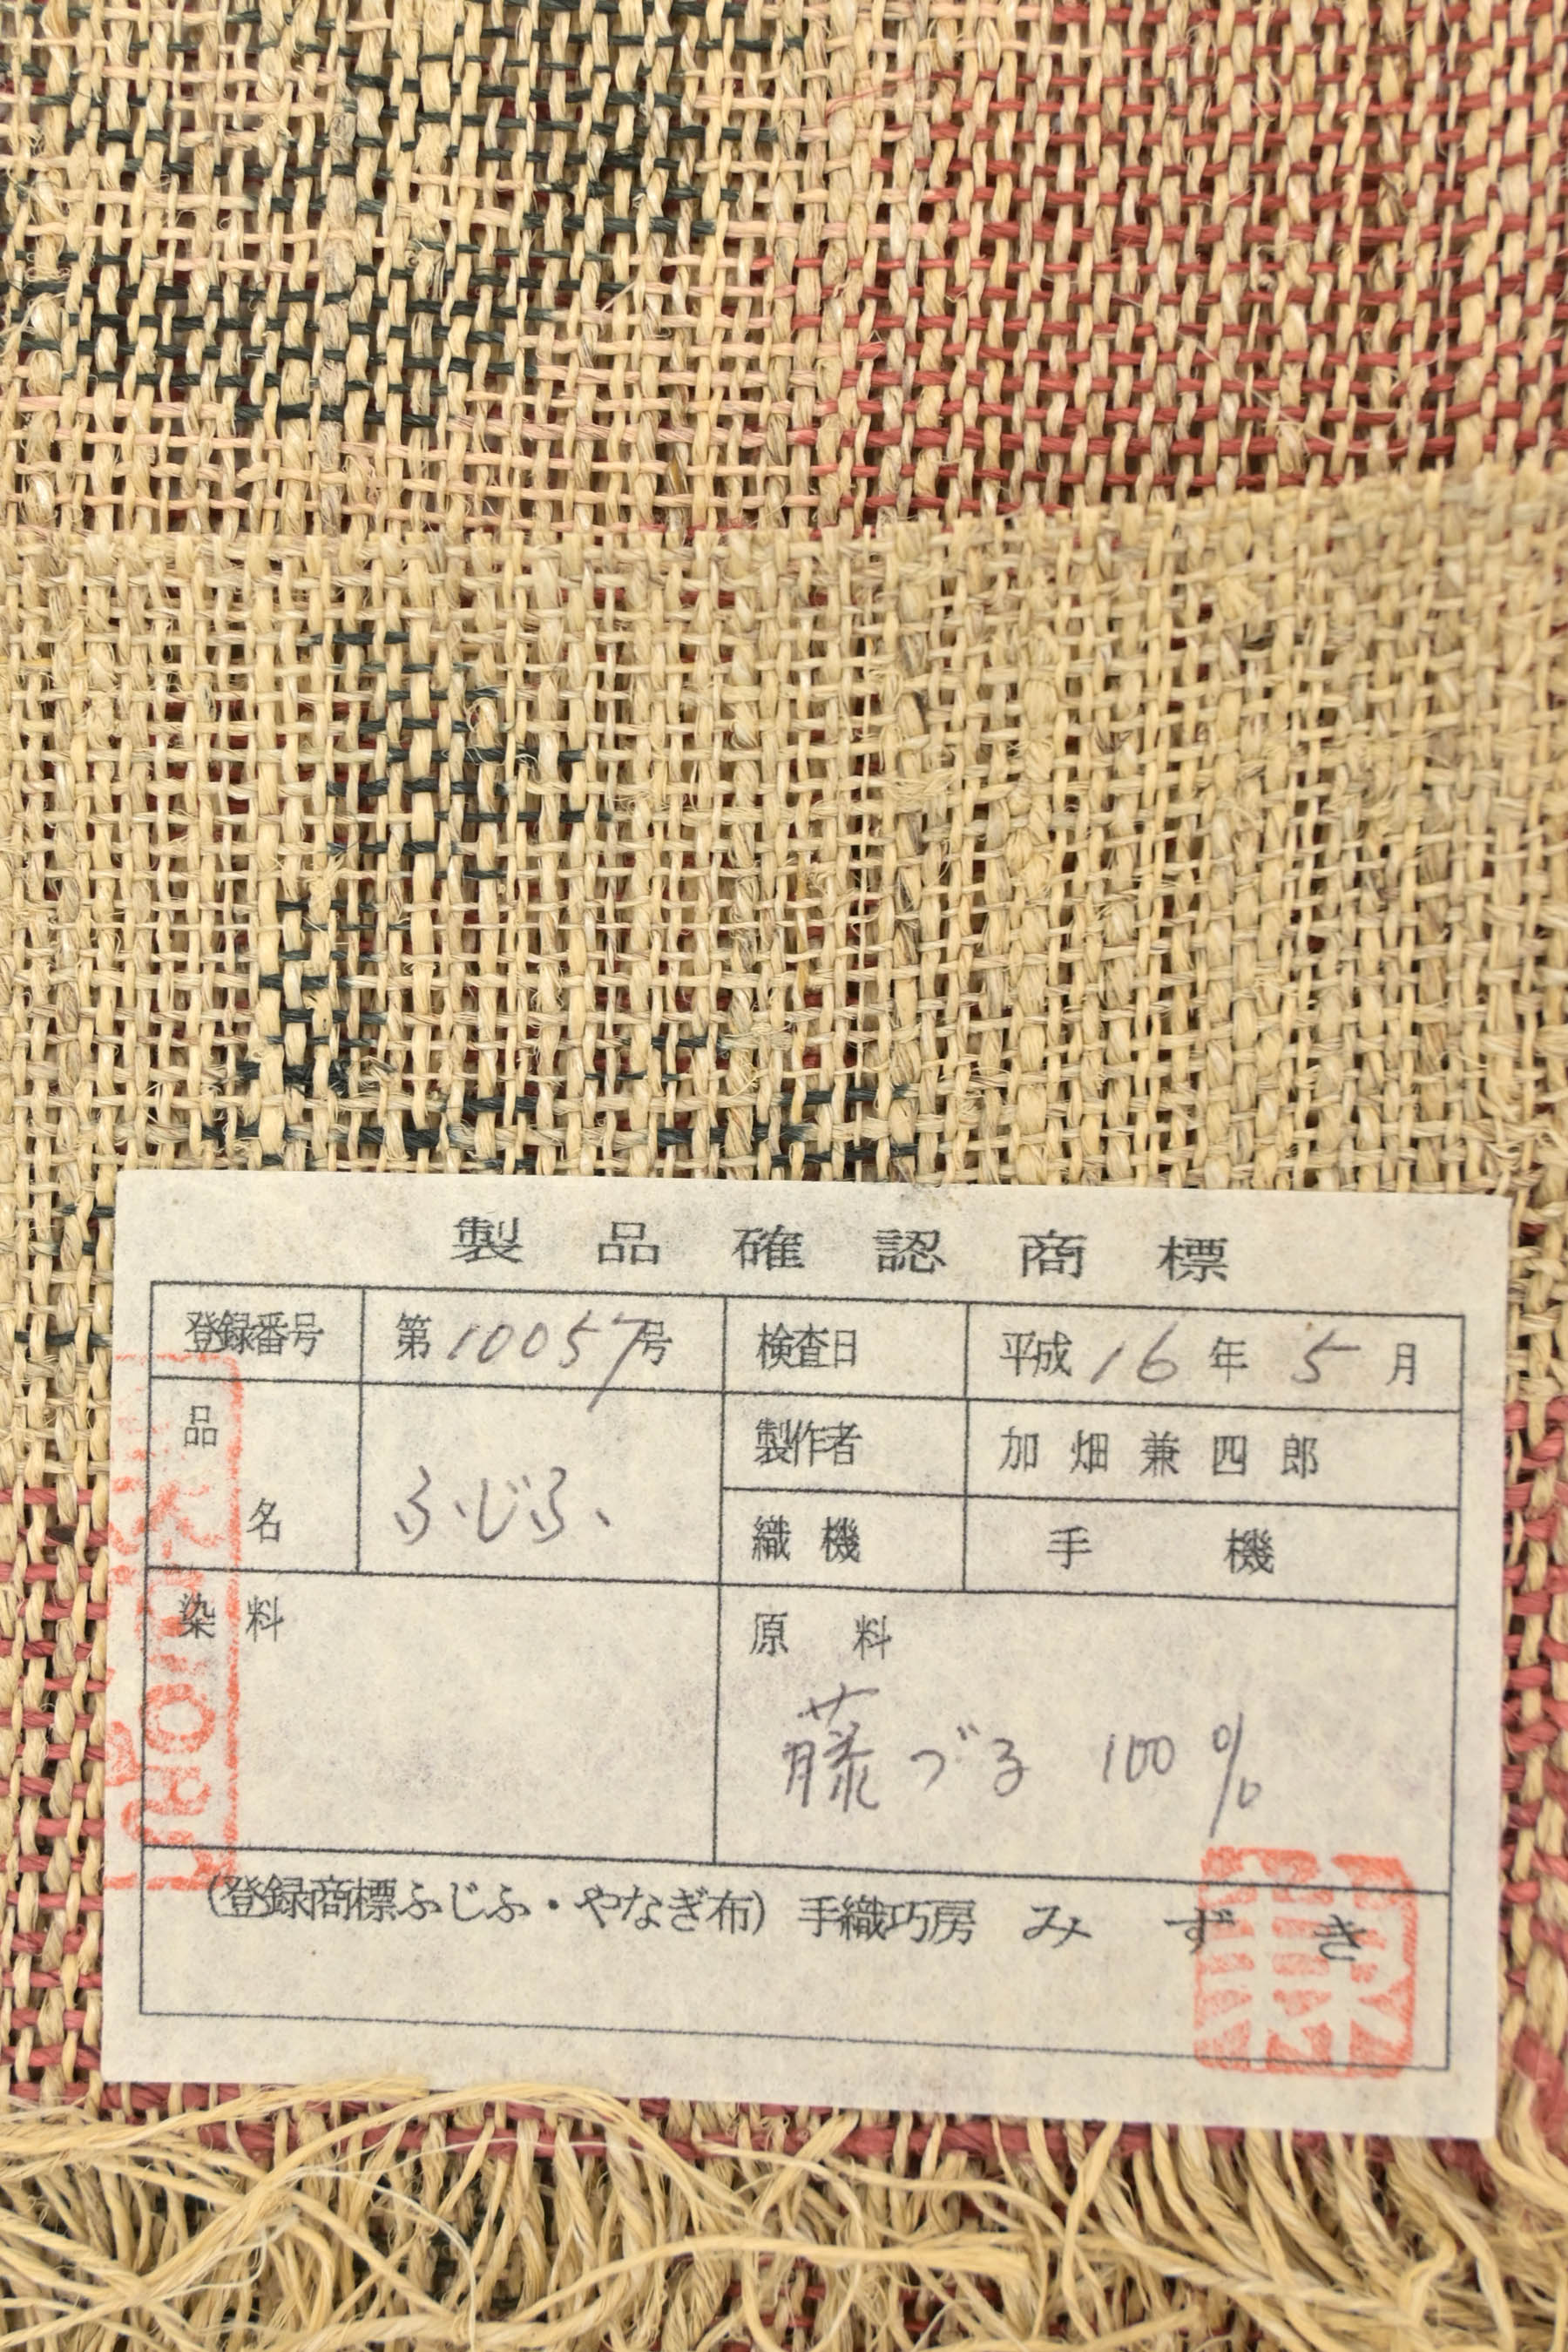 製品確認商標
登録番号 第10057号 検査日 平成16年5月
品名 ふじふ 製作者 加畑兼四郎
織機 手機
染料 原料
藤づる 100%
(登録商標ふじふ・やなぎ布) 手織巧房 みずき